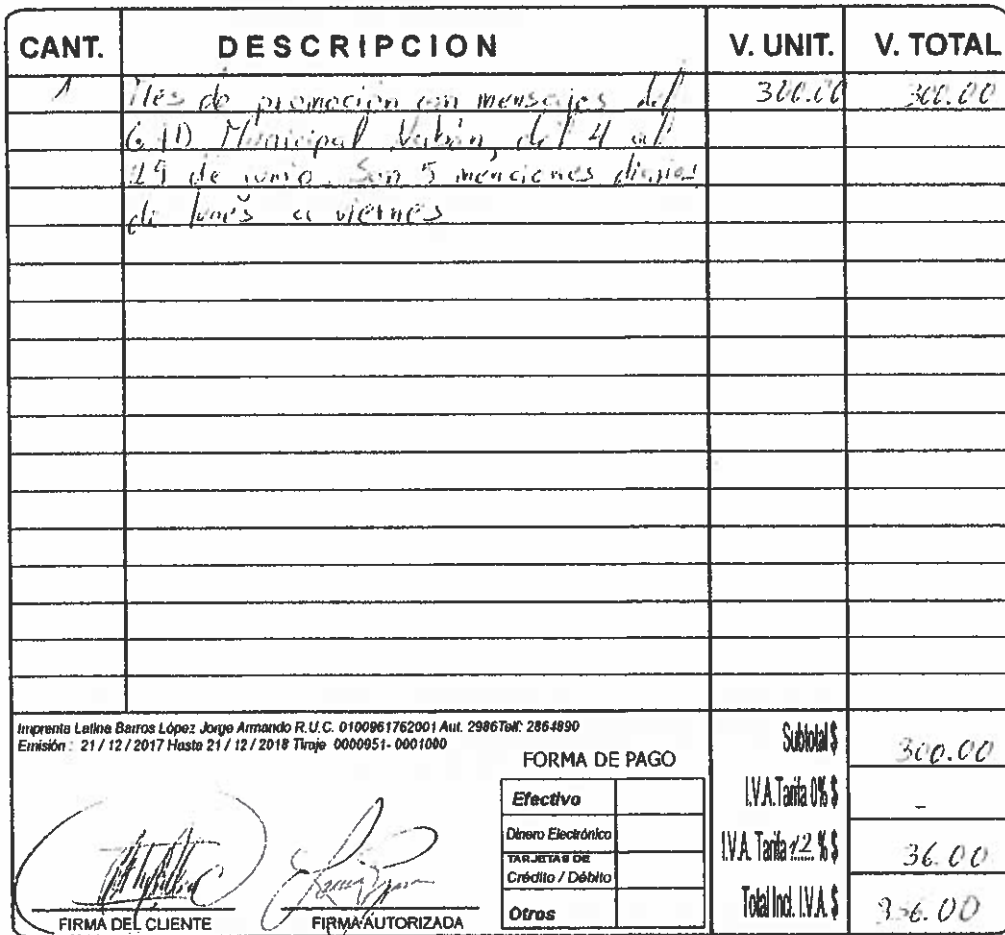 CANT. DESCRIPCION V. UNIT. V. TOTAL
1 Mes de promoción con mensajes del 300.00 300.00
GAD Municipal Nabón, del 4 al
29 de junio. Son 5 menciones diarias
de lunes a viernes
Imprenta Latina Barros López Jorge Armando R.U.C. 0100961762001 Aut. 2986 Telf: 2864890
Emisión : 21 / 12 / 2017 Hasta 21 / 12 / 2018 Tiraje 0000951- 0001000
FORMA DE PAGO
Efectivo
Dinero Electrónico
TARJETAS DE
Crédito / Débito
Otros
Subtotal $ 300.00
I.V.A. Tarifa 0% $ -
I.V.A. Tarifa 12 % $ 36.00
Total Incl. I.V.A. $ 336.00
FIRMA DEL CLIENTE FIRMA AUTORIZADA